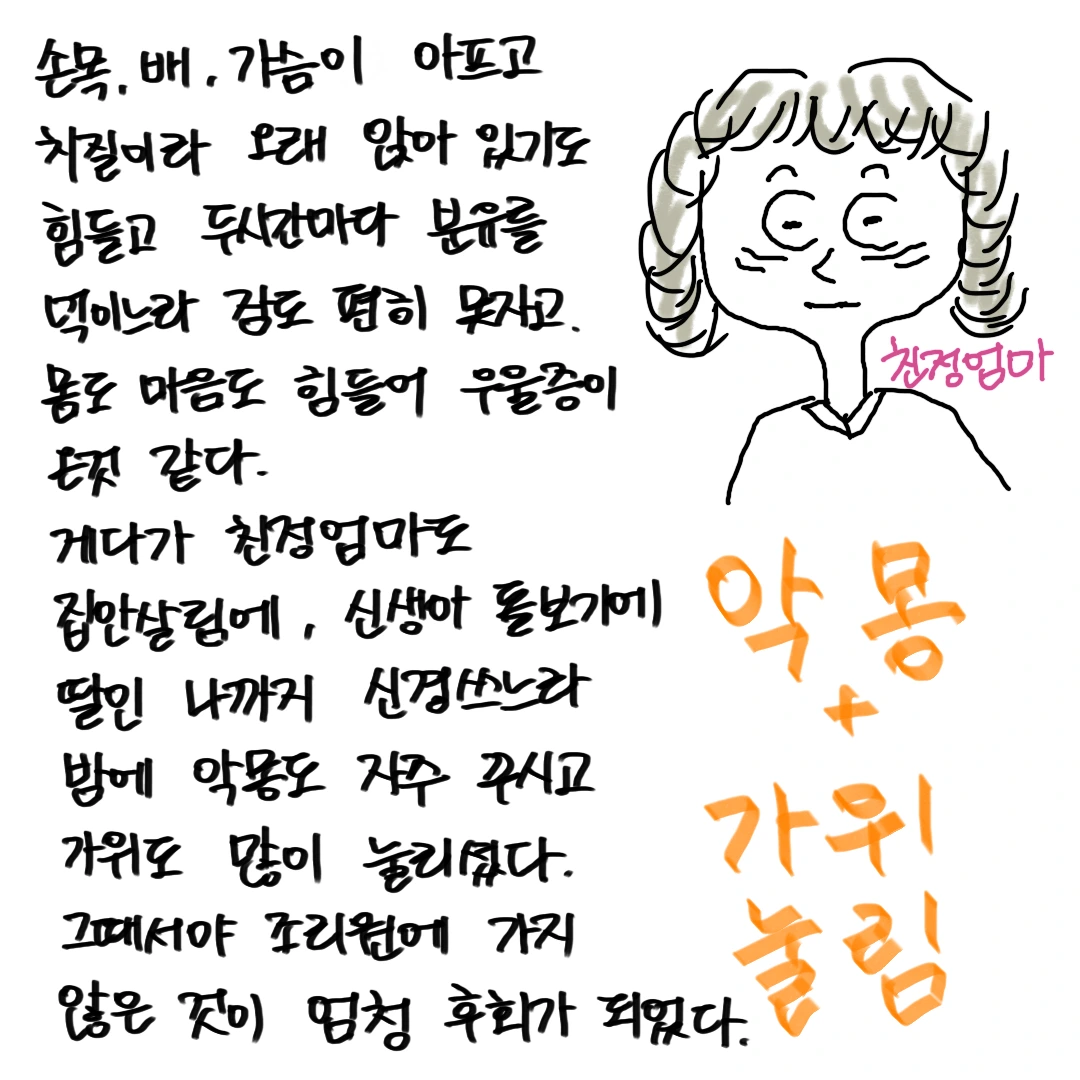 손목, 배, 가슴이 아프고
치질이라 오래 앉아 있기도
힘들고 두시간마다 분유를
먹이느라 잠도 편히 못자고.
몸도 마음도 힘들어 우울증이
온것 같다.
게다가 친정엄마도
집안살림에, 신생아 돌보기에
딸인 나까지 신경쓰느라
밤에 악몽도 자주 꾸시고
가위도 많이 눌리셨다.
그때서야 조리원에 가지
않은 것이 엄청 후회가 되었다.
친정엄마
악몽
+
가위
눌림